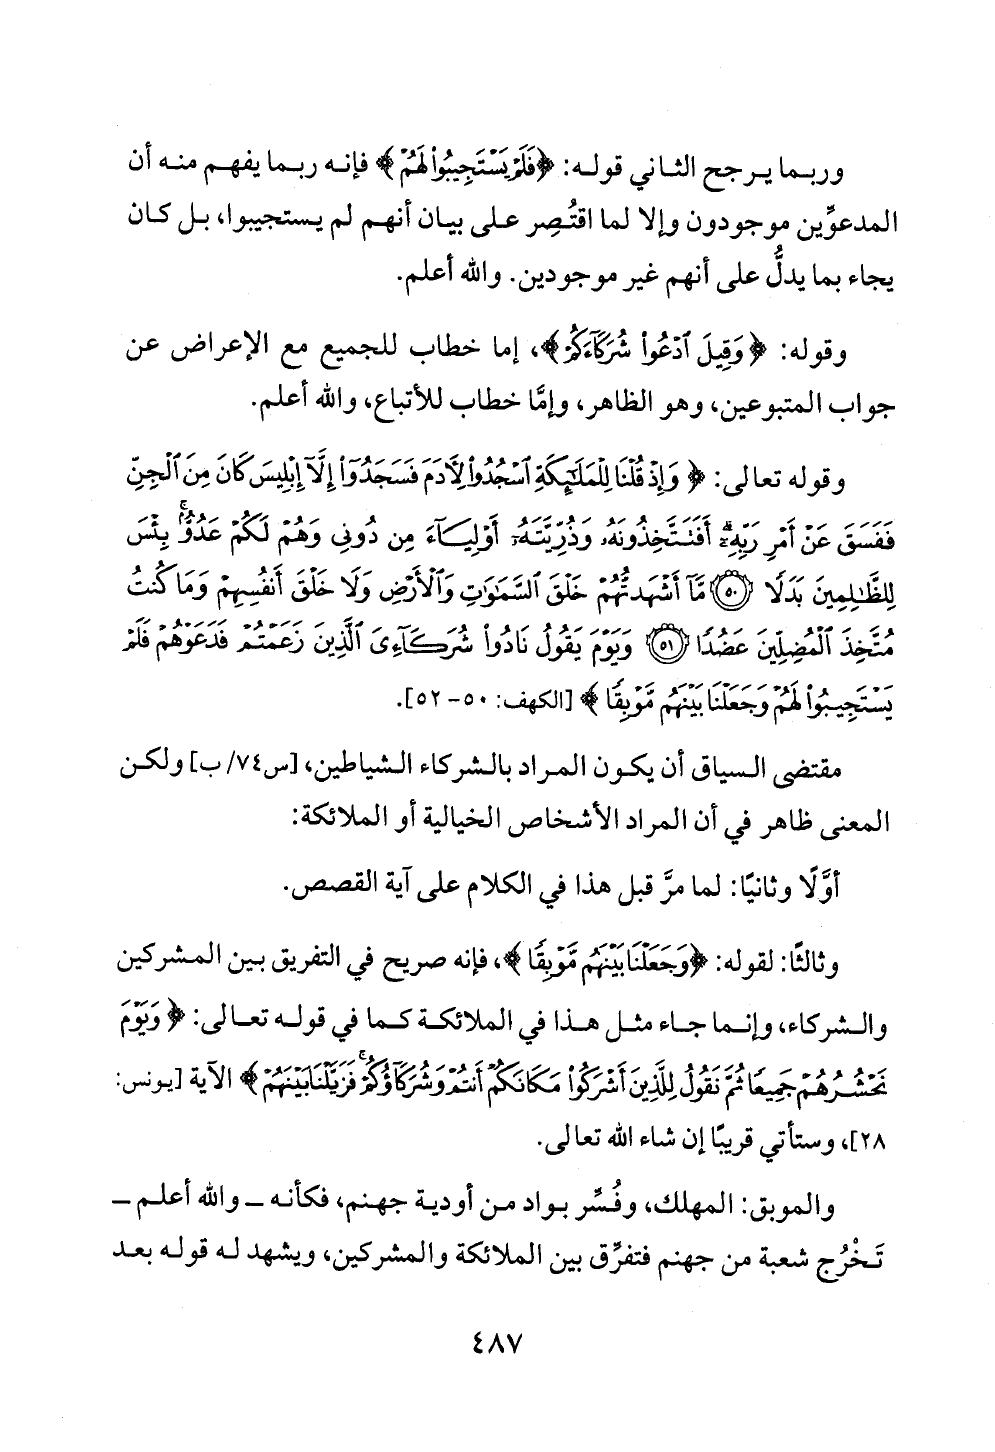 وربما يرجح الثاني قوله: ﴿فَلَمْ يَسْتَجِيبُوا۟ لَهُمْ﴾ فإنه ربما يفهم منه أن
المدعوِّين موجودون وإلا لما اقتُصِر على بيان أنهم لم يستجيبوا، بل كان
يجاء بما يدلُّ على أنهم غير موجودين. والله أعلم.
وقوله: ﴿وَقِيلَ ٱدْعُوا۟ شُرَكَآءَكُمْ﴾، إما خطاب للجميع مع الإعراض عن
جواب المتبوعين، وهو الظاهر، وإمَّا خطاب للأتباع، والله أعلم.
وقوله تعالى: ﴿وَإِذْ قُلْنَا لِلْمَلَـٰٓئِكَةِ ٱسْجُدُوا۟ لِـَٔادَمَ فَسَجَدُوٓا۟ إِلَّآ إِبْلِيسَ كَانَ مِنَ ٱلْجِنِّ
فَفَسَقَ عَنْ أَمْرِ رَبِّهِۦٓ ۗ أَفَتَتَّخِذُونَهُۥ وَذُرِّيَّتَهُۥٓ أَوْلِيَآءَ مِن دُونِى وَهُمْ لَكُمْ عَدُوٌّۢ ۚ بِئْسَ
لِلظَّـٰلِمِينَ بَدَلًا ۝٥٠ مَّآ أَشْهَدتُّهُمْ خَلْقَ ٱلسَّمَـٰوَٰتِ وَٱلْأَرْضِ وَلَا خَلْقَ أَنفُسِهِمْ وَمَا كُنتُ
مُتَّخِذَ ٱلْمُضِلِّينَ عَضُدًا ۝٥١ وَيَوْمَ يَقُولُ نَادُوا۟ شُرَكَآءِىَ ٱلَّذِينَ زَعَمْتُمْ فَدَعَوْهُمْ فَلَمْ
يَسْتَجِيبُوا۟ لَهُمْ وَجَعَلْنَا بَيْنَهُم مَّوْبِقًا﴾ [الكهف: ٥٠- ٥٢].
مقتضى السياق أن يكون المراد بالشركاء الشياطين، [س٧٤/ ب] ولكن
المعنى ظاهر في أن المراد الأشخاص الخيالية أو الملائكة:
أوَّلًا وثانيًا: لما مرَّ قبل هذا في الكلام على آية القصص.
وثالثًا: لقوله: ﴿وَجَعَلْنَا بَيْنَهُم مَّوْبِقًا﴾، فإنه صريح في التفريق بين المشركين
والشركاء، وإنما جاء مثل هذا في الملائكة كما في قوله تعالى: ﴿وَيَوْمَ
نَحْشُرُهُمْ جَمِيعًا ثُمَّ نَقُولُ لِلَّذِينَ أَشْرَكُوا۟ مَكَانَكُمْ أَنتُمْ وَشُرَكَآؤُكُمْ ۚ فَزَيَّلْنَا بَيْنَهُمْ﴾ الآية [يونس:
٢٨]، وستأتي قريبًا إن شاء الله تعالى.
والموبق: المهلك، وفُسِّر بواد من أودية جهنم، فكأنه – والله أعلم –
تَخْرُج شعبة من جهنم فتفرِّق بين الملائكة والمشركين، ويشهد له قوله بعد
٤٨٧